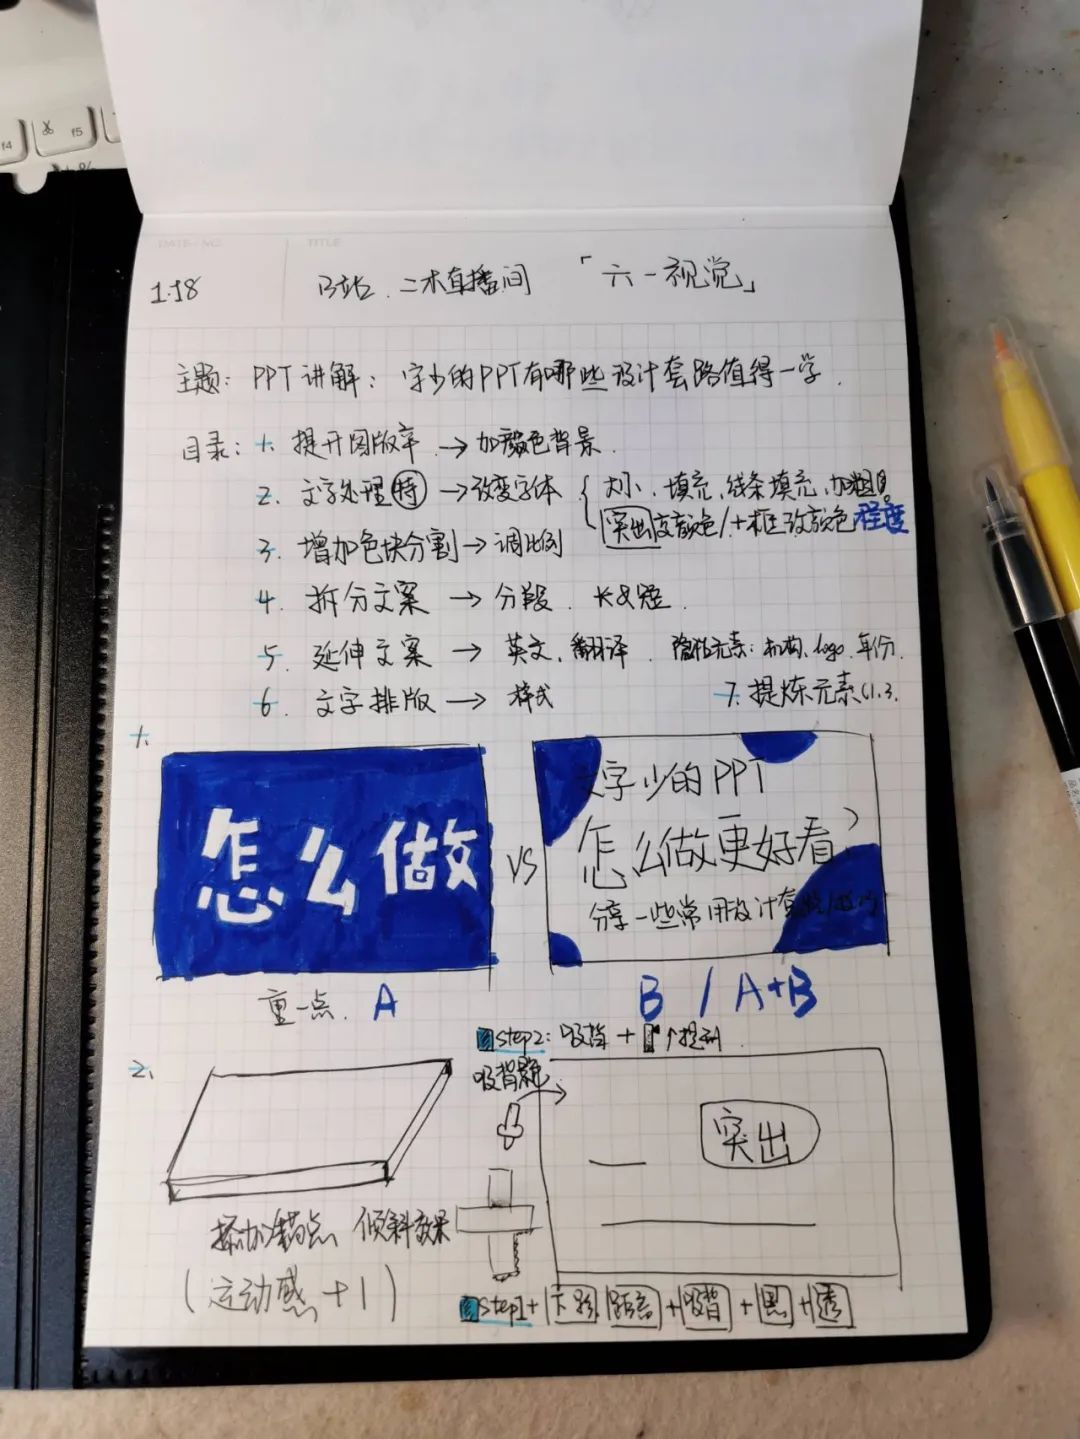 f4
f5
DATE·NO.
TITLE
1.18
B站.二木直播间 「六一视觉」
主题: PPT 讲解: 字少的PPT有哪些设计套路值得一学.
目录: 1. 提升图版率 → 加颜色背景.
2. 文字处理 特 → 改变字体 { 大小、填充、线条填充、加粗
突出改颜色/+框改颜色 程度
3. 增加色块分割 → 调比例
4. 拆分文案 → 分段. 长&短.
5. 延伸文案 → 英文、翻译. 隐性元素: 机构、logo、年份.
6. 文字排版 → 样式
7. 提炼元素(1.3.
1.
怎么做
VS
文字少的PPT
怎么做更好看?
分享一些常用设计套路
重一点. A
B / A+B
2.
step2: 吸背 +
吸背景
突出
添加锚点 倾斜效果
(运动感+1)
step1 + 距离 + 吸背 + 黑 + 透